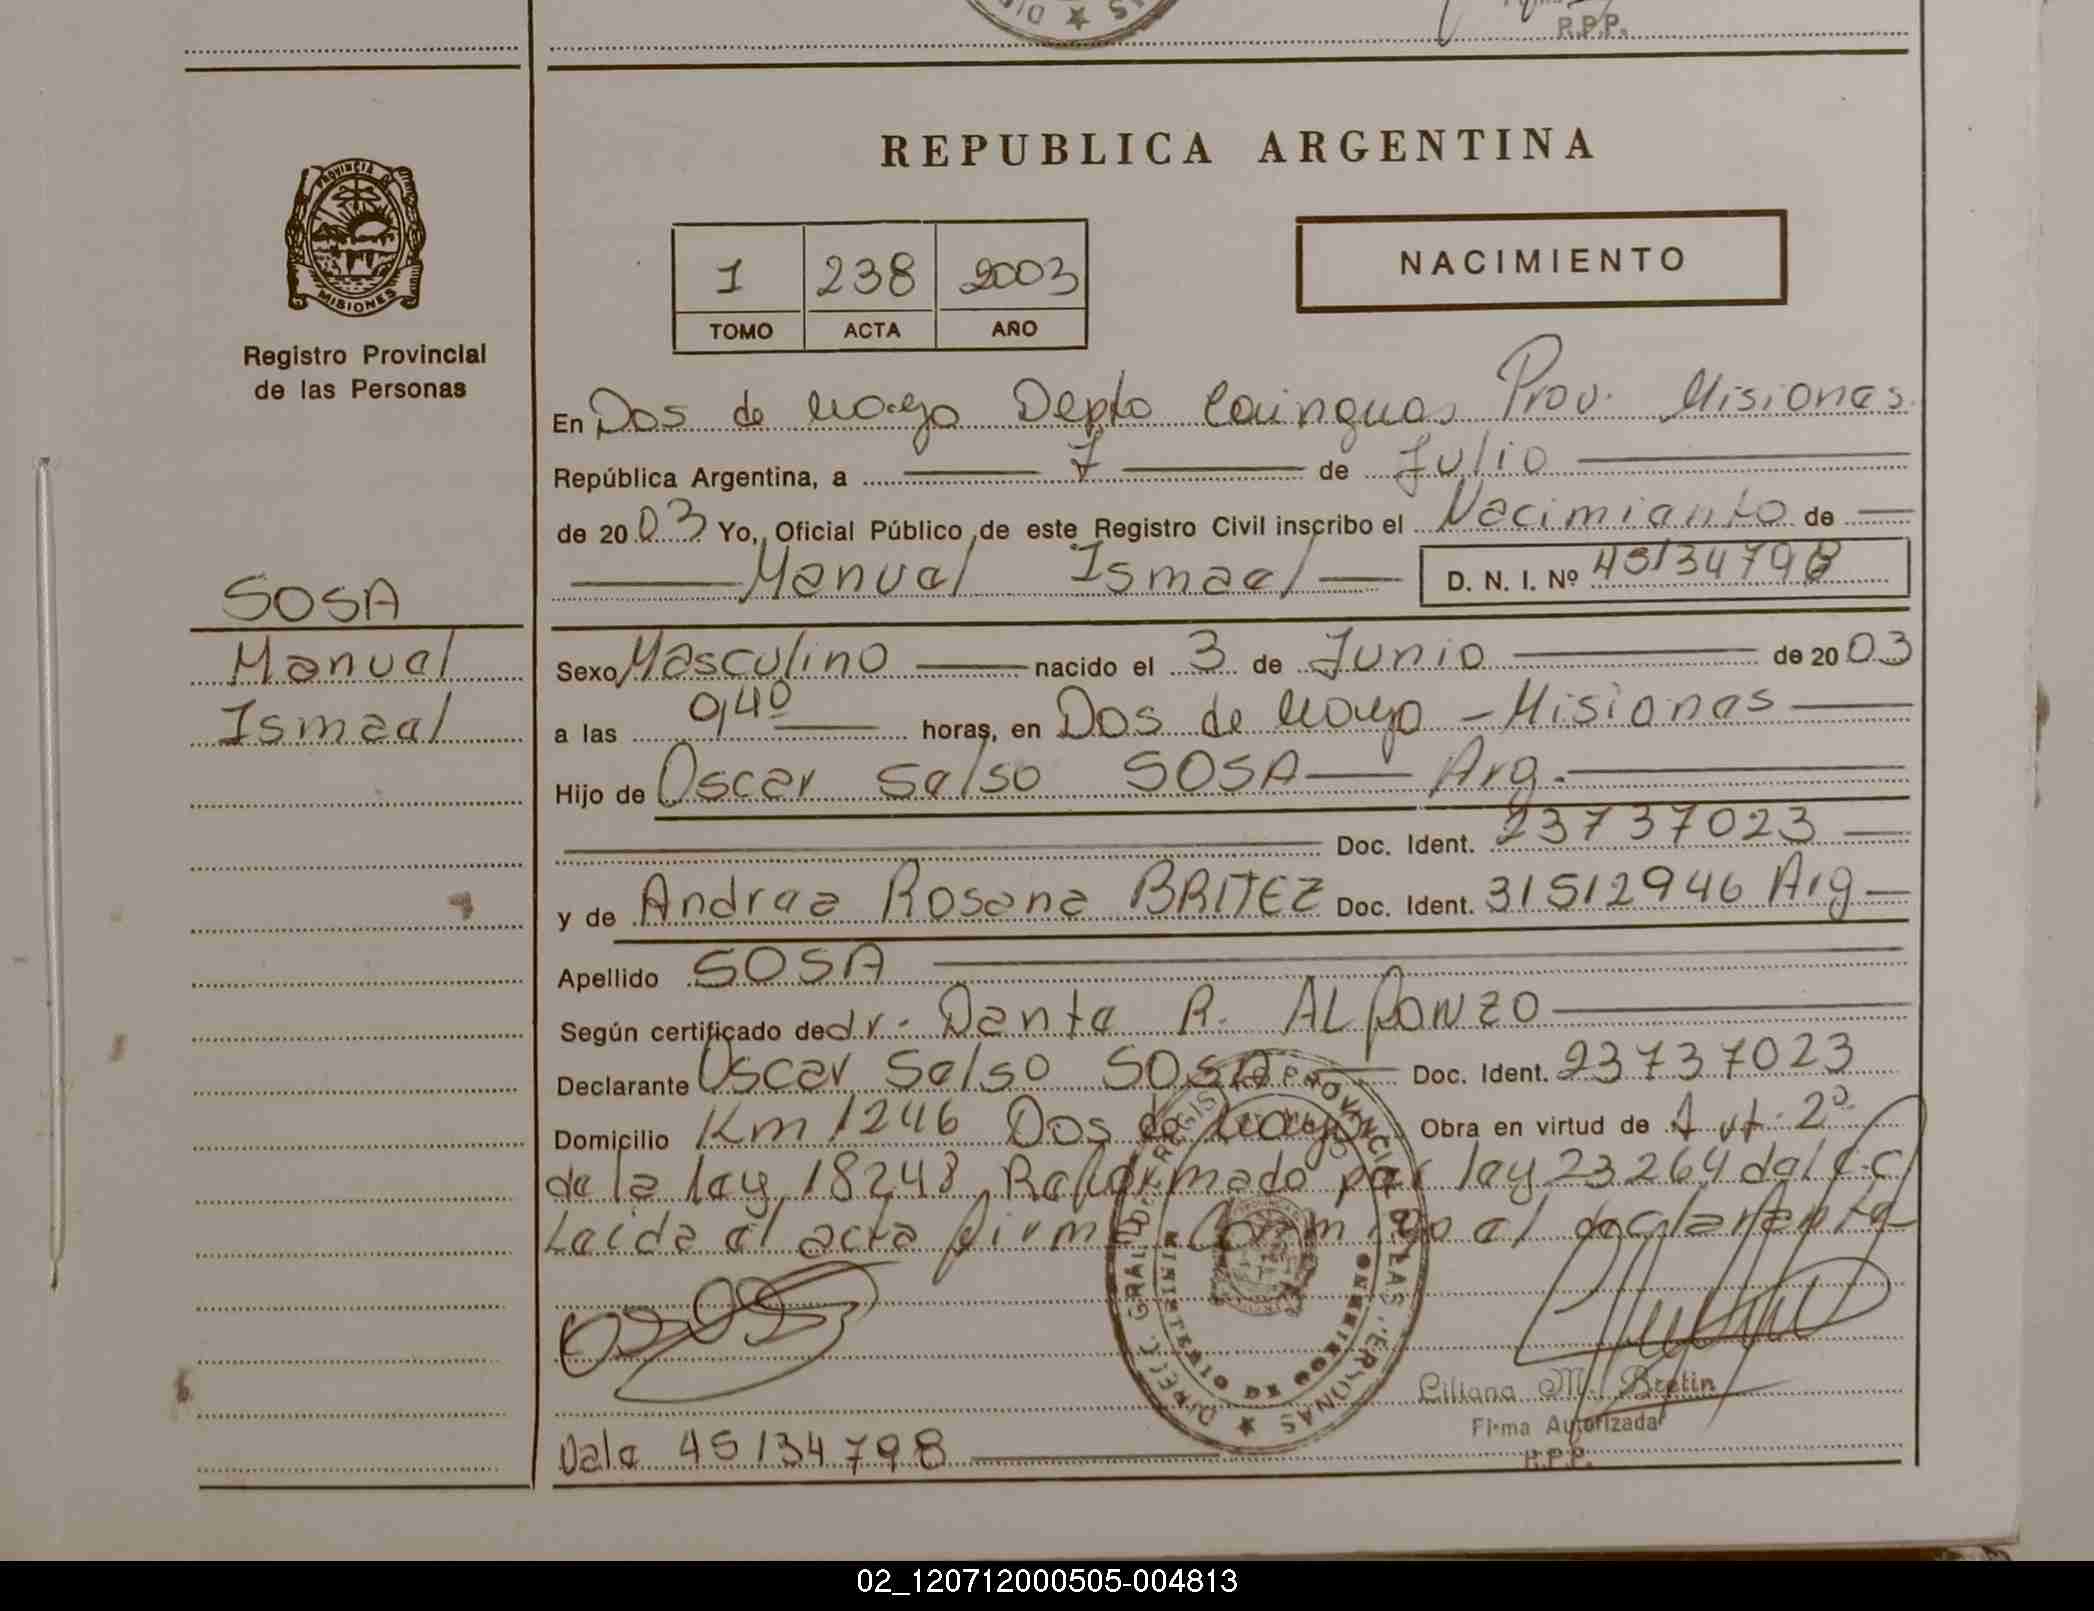 R.P.P.
REPUBLICA ARGENTINA
PROVINCIA DE
MISIONES
Registro Provincial
de las Personas
1 238 2003
TOMO ACTA AÑO
NACIMIENTO
En Dos de Mayo Depto Cainguas Prov. Misiones
República Argentina, a 7 de Julio
de 2003 Yo, Oficial Público de este Registro Civil inscribo el Nacimiento de
Manuel Ismael D. N. I. Nº 45134798
SOSA
Manuel
Ismael
Sexo Masculino nacido el 3 de Junio de 2003
a las 9,40 horas, en Dos de Mayo - Misiones
Hijo de Oscar Selso SOSA Arg.
Doc. Ident. 23737023
y de Andrea Rosana BRITEZ Doc. Ident. 31512946 Arg
Apellido SOSA
Según certificado de dr. Dante R. ALFONZO
Declarante Oscar Selso SOSA Doc. Ident. 23737023
Domicilio Km 1246 Dos de Mayo Obra en virtud de Art. 2º
de la ley 18248 Reformado por ley 23.264 del C.C
Leida el acta firma Conmigo el declarante
MINISTERIO DE GOBIERNO
Liliana M. Bretin
Firma Autorizada
R.P.P.
Vale 45134798
02_120712000505-004813